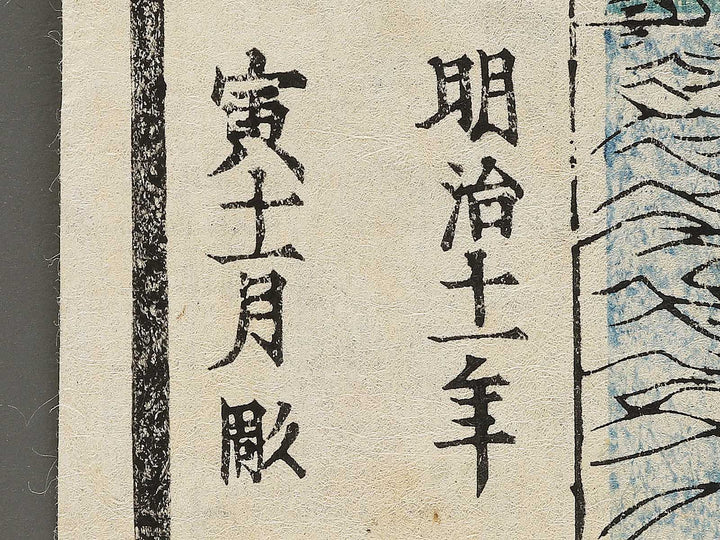 明治十一年
寅十一月彫